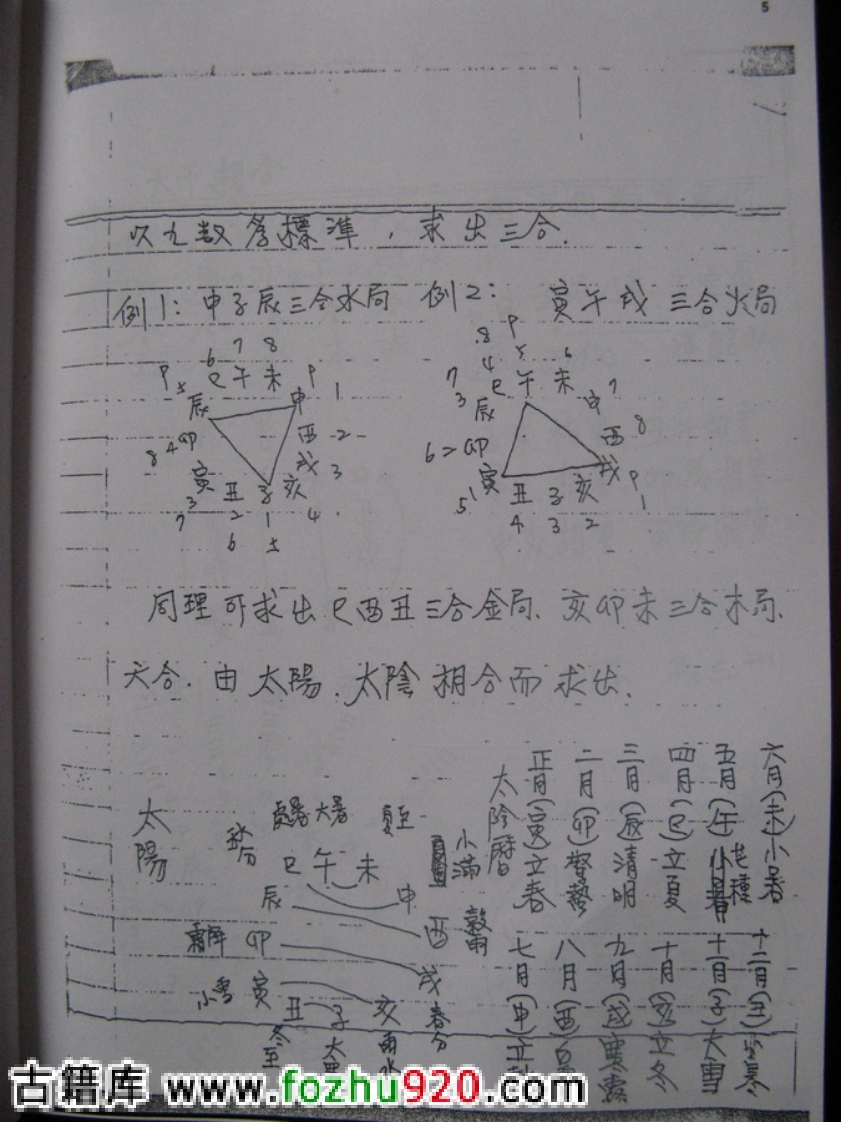 5
以九数為標準，求出三合.
例1：申子辰三合水局 例2： 寅午戌 三合火局
6 7 8
9 5 巳 午 未 9
辰 申 1
8 4 卯 酉 2
寅 戌 3
7 3 丑 子 亥 4
2 1
6 5
8 9
7 4 5 6
3 巳 午 未 7
辰 申
6 2 卯 酉 8
5 1 寅 戌 9
丑 子 亥 1
4 3 2
同理可求出巳酉丑三合金局、亥卯未三合木局、
六合.由太陽、太陰相合而求出.
太陽
秋分 處暑 大暑 夏至
巳 午 未 小滿
辰 申
酉 穀雨
霜降 卯
戌 春分
小雪 寅 丑 子 亥
冬至 雨水
太陰曆
正月(寅)立春
二月(卯)驚蟄
三月(辰)清明
四月(巳)立夏
五月(午)芒種
六月(未)小暑
七月(申)立
八月(酉)白
九月(戌)寒露
十月(亥)立冬
十一月(子)大雪
十二月(丑)寒
古籍库 www.fozhu920.com